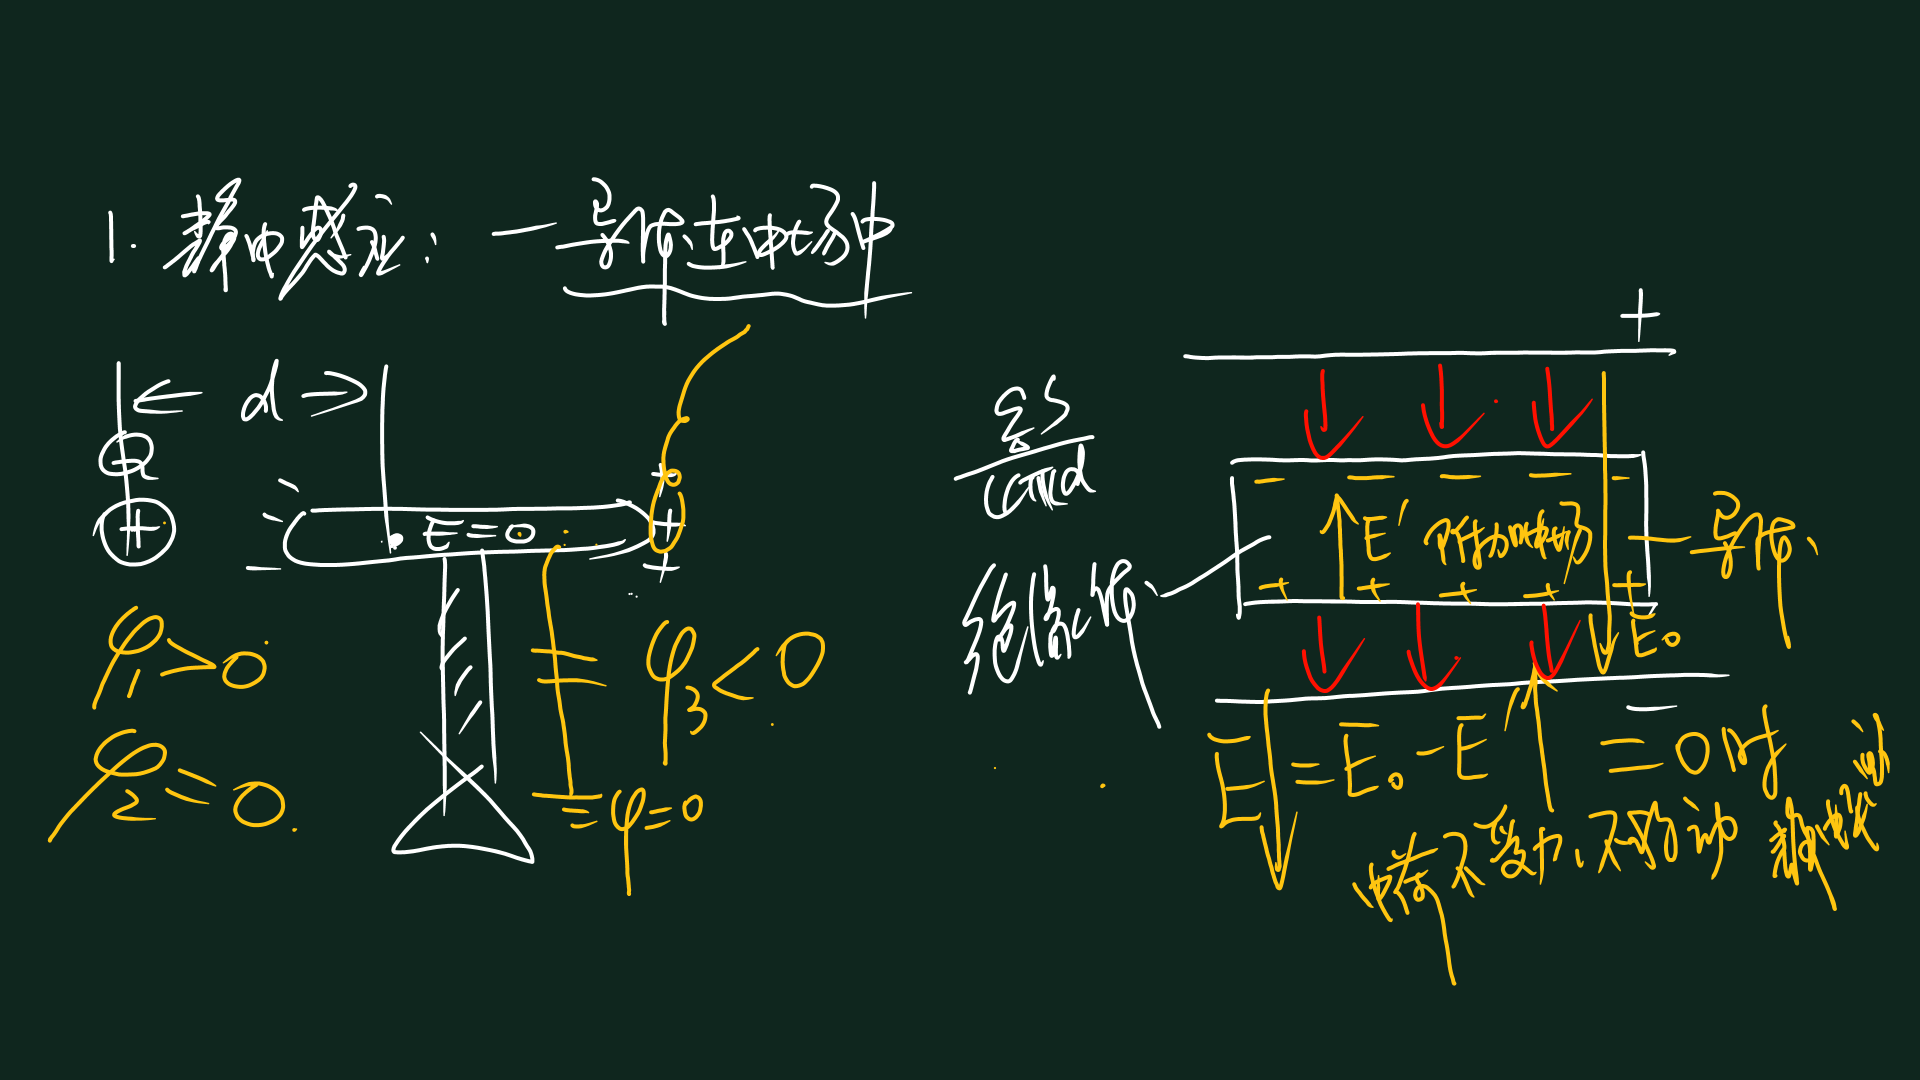 1. 静电感应: 一导体在电场中
← d →
Q
+
E=0
+
+
+
φ₁>0
φ₂=0
φ₃<0
=φ=0
εS
4πkd
绝缘体
+
- - - - -
E' 附加电场
+ + + + +
导体
E₀
-
E=E₀-E' =0时
电荷不受力、不移动 静电平衡